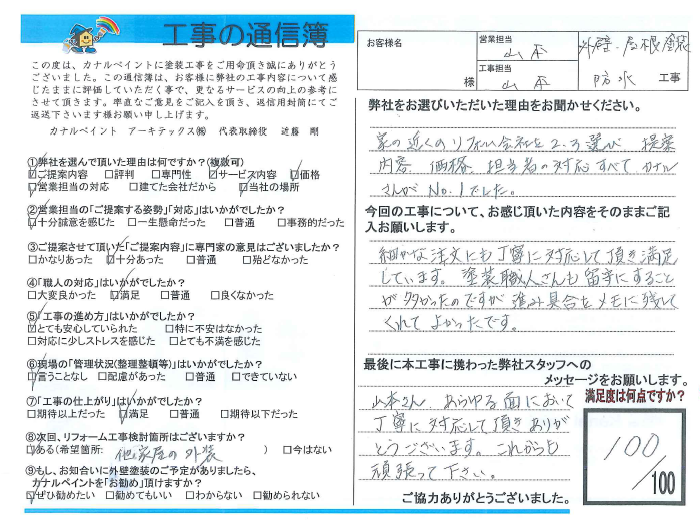 工事の通信簿
この度は、カナルペイントに塗装工事をご用命頂き誠にありがとう
ございました。この通信簿は、お客様に弊社の工事内容について感
じたままに評価していただく事で、更なるサービスの向上の参考に
させて頂きます。率直なご意見をご記入を頂き、返信用封筒にてご
返送下さいます様お願い申し上げます。
カナルペイント アーキテックス㈱ 代表取締役 近藤 剛
①弊社を選んで頂いた理由は何ですか？(複数可)
☑ご提案内容 □評判 □専門性 ☑サービス内容 ☑価格
☑営業担当の対応 □建てた会社だから ☑当社の場所
②営業担当の「ご提案する姿勢」「対応」はいかがでしたか？
☑十分誠意を感じた □一生懸命だった □普通 □事務的だった
③ご提案させて頂いた「ご提案内容」に専門家の意見はございましたか？
□かなりあった ☑十分あった □普通 □殆どなかった
④「職人の対応」はいかがでしたか？
□大変良かった ☑満足 □普通 □良くなかった
⑤「工事の進め方」はいかがでしたか？
☑とても安心していられた □特に不安はなかった
□対応に少しストレスを感じた □とても不満を感じた
⑥現場の「管理状況(整理整頓等)」はいかがでしたか？
☑言うことなし □配慮があった □普通 □できていない
⑦「工事の仕上がり」はいかがでしたか？
□期待以上だった ☑満足 □普通 □期待以下だった
⑧次回、リフォーム工事検討箇所はございますか？
☑ある(希望箇所: 他家屋の外装 ) □今はない
⑨もし、お知合いに外壁塗装のご予定がありましたら、
カナルペイントを「お勧め」頂けますか？
☑ぜひ勧めたい □勧めてもいい □わからない □勧められない
お客様名 様
営業担当 山本
工事担当 山本
外壁・屋根塗装
防水 工事
弊社をお選びいただいた理由をお聞かせください。
家の近くのリフォーム会社を2.3選び 提案
内容、価格、担当者の対応すべてカナル
さんがNo.1でした。
今回の工事について、お感じ頂いた内容をそのままご記
入お願いします。
細かな注文にも丁寧に対応して頂き満足
しています。塗装職人さんも留守にすること
が多かったのですが進み具合をメモに残して
くれてよかったです。
最後に本工事に携わった弊社スタッフへの
メッセージをお願いします。
山本さん、あらゆる面において
丁寧に対応して頂きありが
とうございます。これからも
頑張って下さい。
満足度は何点ですか？
100
/100
ご協力ありがとうございました。